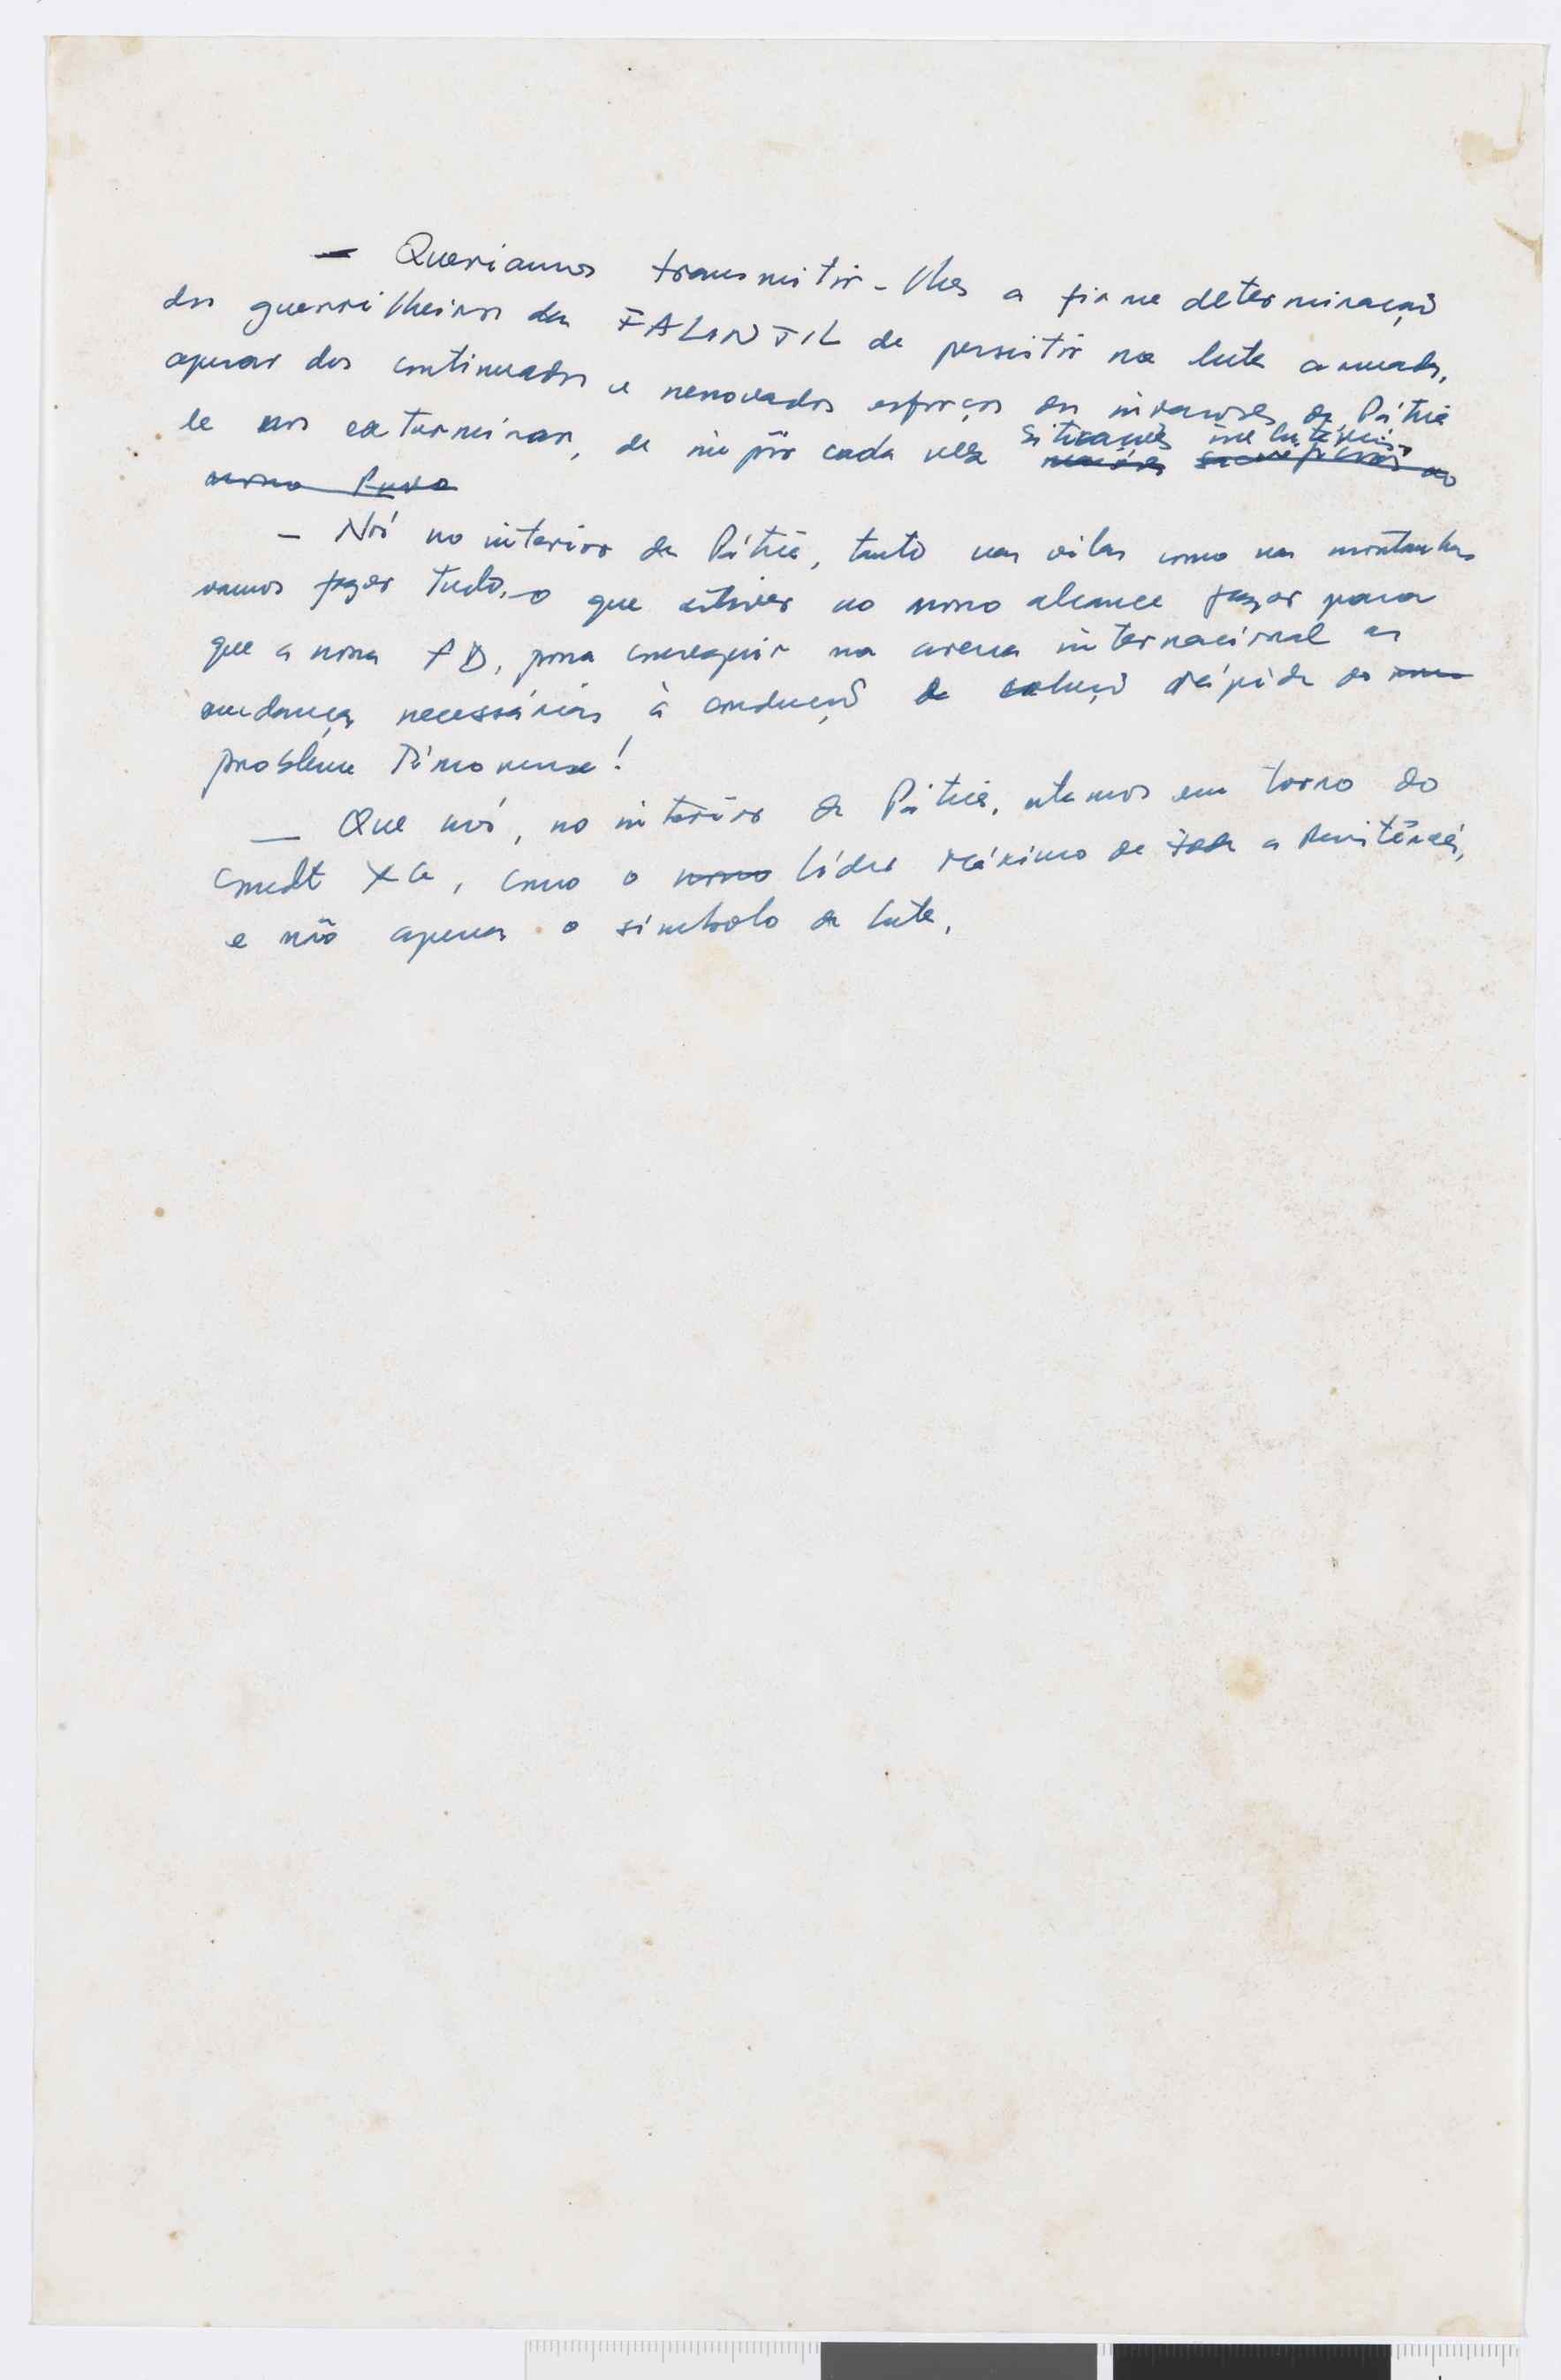 - Queriamos transmitir-lhes a firme determinação
dos guerrilheiros das FALINTIL de persistir na luta armada,
apesar dos continuados e renovados esforços dos invasores da Pátria
de nos exterminar, de impôr cada vez situações ineluctáveis.
maiores sacrifícios ao
nosso Povo
- Nós no interior da Pátria, tanto nas vilas como nas montanhas
vamos fazer tudo, o que estiver ao nosso alcance fazer para
que a nossa FD, possa conseguir na arena internacional as
mudanças necessárias à condução da solução rápida do
problema Timorense!
- Que nós, no interior da Pátria, estamos em torno do
Cmdt XG, como o nosso líder máximo de toda a Resistência,
e não apenas o símbolo da luta.